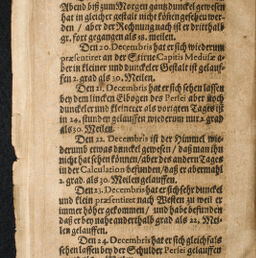 Abend biß zum Morgen gantz dunckel gewesen
hat in gleicher gestalt nicht können gesehen wer-
den / aber der Rechnung nach ist er dritthalb
gr. fort gegangen als 38. meilen.
Den 20. Decembris hat er sich wiederum
præsentiret an der Stirne Capitis Medusæ a-
ber in kleiner und dunckeler Gestalt ist gelauf-
fen 2. grad als 30. Meilen.
Den 21. Decembris hat er sich sehen lassen
bey dem lincken Elbogen des Persei aber noch
dunckeler und kleineter als vorigten Tages ist
in 24. stunden gelauffen wiederum nur 2. grad
als 30. Meilen.
Den 22. Decembris ist der Himmel wie-
derumb etwas dunckel gewesen / daß man ihn
nicht hat sehen können / aber des andern Tages
in der Calculation befunden / daß er abermahl
2. grad. als 30. Meilen gelauffen.
Den 23. Decembris hat er sich sehr dunckel
und klein præsentiret nach Westen zu weil er
immer höher gekommen / und habe befunden
daß er bey nahe anderthalb grad als 22. Mei-
len gelauffen.
Den 24. Decembris hat er sich gleichfals
sehen lassen bey der Schulder Persei gelauffen